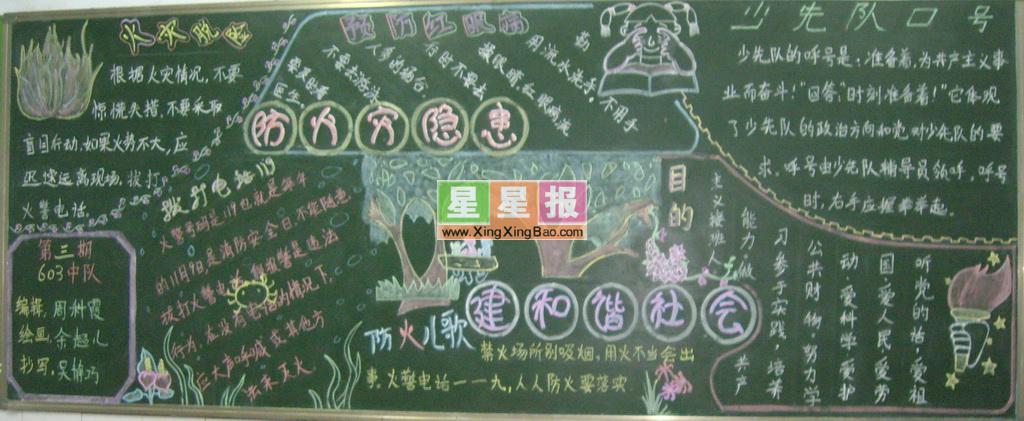 火灾脱险
根据火灾情况，不要
惊慌失措，不要采取
盲目行动，如果火势不大，应
迅速远离现场，拨打
火警电话。
第三期
603中队
编辑：周科霞
绘画：余超儿
抄写：吴倩巧
预防红眼病
不要去游泳
人多的场合
勤
用流水洗手，不用手
防火灾隐患
拨打电话119
火警号码是119也就是每年
的11月9日是消防安全日不能随意
拨打火警电话
报警是违法
行为，在没有电话的情况下，
应大声呼喊或其他方
星星报
www.XingXingBao.com
建和谐社会
防火儿歌
禁火场所别吸烟，用火不当会出
事，火警电话一一九，人人防火要落实
少先队口号
少先队的呼号是：准备着，为共产主义事
业而奋斗！”回答：“时刻准备着！”它体现
了少先队的政治方向和党对少先队的要
求。呼号由少先队辅导员领呼，呼号
时，右手应握拳举起。
目的
听党的话，爱祖
国，爱人民，爱劳
动，爱科学，爱护
公共财物，努力学
习，参于实践，培养
能力，做
共产
主义接班人